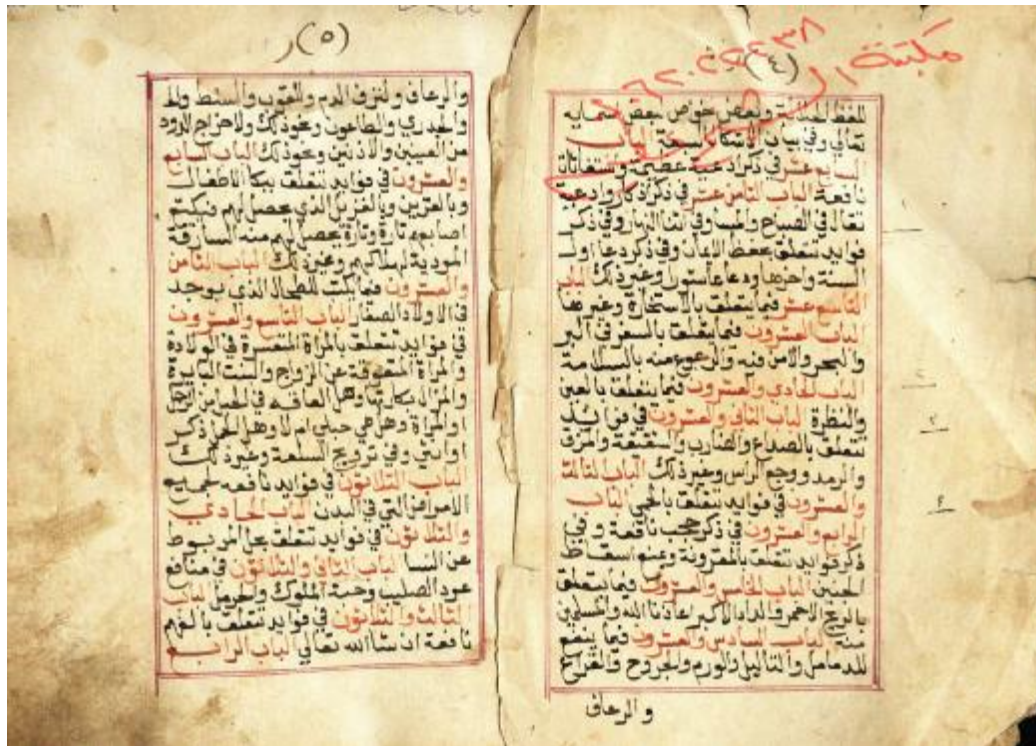 (٤)
للغظ الجلالة وبعض خواص بعض اسمايه
تعالي وفي بيان الاشكال السبعة الباب
السابع عشر في ذكر ادعية عضيمة واستغاثات
نافعة الباب الثامن عشر في ذكر اذكار وادعية
تقال في الصباح والمسا وفي اثنا النهار وفي ذكر
فوايد تتعلق بحفظ الايمان وفي ذكر دعا اول
السنة واخرها ودعا عاشورا وغير ذلك الباب
التاسع عشر فيما يتعلق بالاستخارة وغيرها
الباب العشرون فيما يتعلق بالسفر في البر
والبحر والامن فيه والرجوع منه بالسلامة
الباب الحادي والعشرون فيما يتعلق بالعين
والنظرة الباب الثاني والعشرون في فوايد
تتعلق بالصداع والضارب والشقيقة والنزف
والرمد ووجع الراس وغير ذلك الباب الثالث
والعشرون في فوايد تتعلق بالحمي الباب
الرابع والعشرون في ذكر حجب نافعة وفي
ذكر فوايد تتعلق بالمقرونة ومنع اسقاط
الجنين الباب الخامس والعشرون فيما يتعلق
بالريح الاحمر والداء الاكبر اعاذنا الله والمسلمين
منه الباب السادس والعشرون فيما ينفع
للدمامل والتاليل والورم والجروح والقراع
والرعاف
(٥)
والرعاف ولنزف الدم والقوب والسنط
والجدري والطاعون ونحو ذلك ولاخراج الدود
من العينين والاذنين ونحو ذلك الباب السابع
والعشرون في فوايد تتعلق ببكا الاطفال
وبالقرين وبالغزيل الذي يحصل لهم فيكتم
اصابعهم تارة وتارة يحصل لهم منه السارقة
المودية لهلاكهم وغير ذلك الباب الثامن
والعشرون فيما يكتب للطحال الذي يوجد
في الاولاد الصغار الباب التاسع والعشرون
في فوايد تتعلق بالمراة المتعسرة في الولادة
والمراة المتعوقة عن الزواج والبنت البايرة
وهل العاقه في الحبل من الرجل
او المراة وهل هي حبلي ام لا وهل الحمل ذكر
او انثي وفي ترويج السلعة وغير ذلك
الباب الثلاثون في فوايد نافعه لجميع
الامراض التي في البدن الباب الحادي
والثلاثون في فوايد تتعلق بحل المربوط
عن النسا الباب الثاني والثلاثون في منافع
عود الصليب وحبة الملوك والحرمل الباب
الثالث والثلاثون في فوايد تتعلق بالفهم
نافعة ان شا الله تعالي الباب الرابع